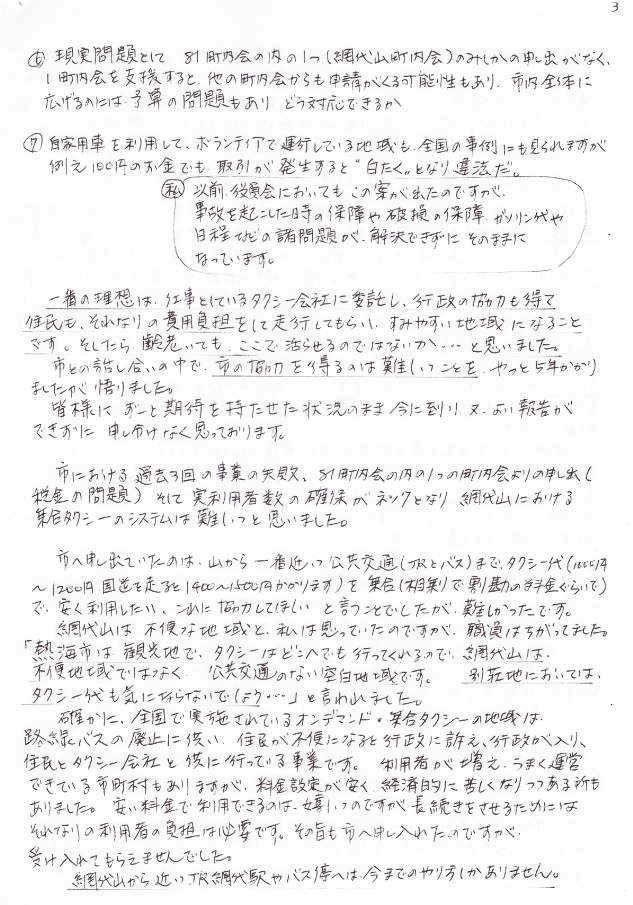 3
⑥ 現実問題として 81町内会の内の1つ(網代山町内会)のみしかの申し出がなく、
1町内会を支援すると、他の町内会からも申請がくる可能性もあり、市内全体に
広げるのには予算の問題もあり どう対応できるか
⑦ 自家用車を利用して、ボランティアで運行している地域も、全国の事例にも見られますが
例え100円のお金でも 取引が発生すると"白たく"となり違法だ。
私 以前、役員会においても この案が出たのですが、
事故を起こした時の保障や破損の保障、ガソリン代や
日程などの諸問題が、解決できずに そのままに
なっています。
一番の理想は、仕事としているタクシー会社に委託し、行政の協力も得て
住民も、それなりの費用負担をして走行してもらい、すみやすい地域になること
です。そしたら、齢老いても、ここで活らせるのではないか・・・と思いました。
市との話し合いの中で、市の協力を得るのは難しいことを、やっと5年かかり
ましたが悟りました。
皆様に ずーと期待を持たせた状況のまま今に到り 又、よい報告が
できずに 申し分けなく思っております。
市における 過去3回の事業の失敗、81町内会の内の1つの町内会よりの申し出(
税金の問題) そして 実利用者数の確保がネックとなり 網代山における
集合タクシーのシステムは難しいと思いました。
市へ申し出ていたのは、山から一番近い公共交通(JRとバス)まで、タクシー代(1000円
〜1200円 国道を走ると1400〜1500円かかります)を集合(相乗りで割勘の料金ぐらいで)
で、安く利用したい、これに協力してほしい と言うことでしたが、難しかったです。
網代山は 不便な地域と、私は思っていたのですが、職員はちがってました。
「熱海市は 観光地で、タクシーはどこへでも行ってくれるので、網代山は、
不便地域ではなく、公共交通のない空白地域です。 別荘地においては、
タクシー代も気にならないで(しょう・・・」と言われました。
確かに、全国で実施されているオンデマンド・集合タクシーの地域は、
路線バスの廃止に伴い、住民が不便になると行政に訴え、行政が入り、
住民とタクシー会社と供に行っている事業です。 利用者が増え、うまく運営
できている市町村もありますが、料金設定が安く、経済的に苦しくなりつつある所も
ありました。 安い料金で利用できるのは、嬉しいのですが長続きをさせるためには
それなりの利用者の負担は必要です。その旨も市へ申し入れたのですが、
受け入れてもらえませんでした。
網代山から近いJR網代駅やバス停へは、今までのやり方しかありません。